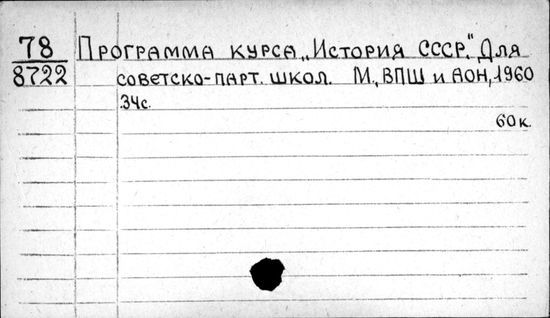 78 Программа курса „История СССР". Для
8722 советско-парт. школ. М., ВПШ и АОН, 1960
34с.
60к.